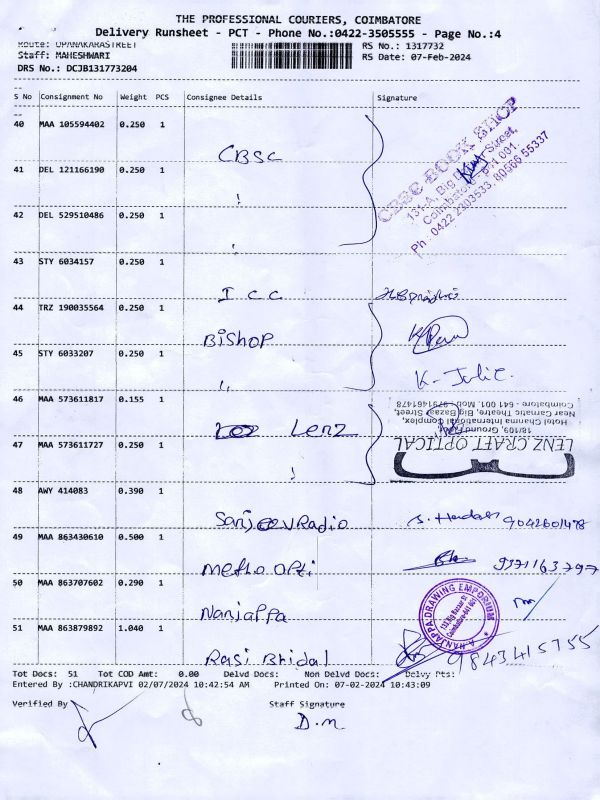 THE PROFESSIONAL COURIERS, COIMBATORE
Delivery Runsheet - PCT - Phone No.:0422-3505555 - Page No.:4
Route: OPANAKARASTREET RS No.: 1317732
Staff: MAHESHWARI RS Date: 07-Feb-2024
DRS No.: DCJB131773204
S No Consignment No Weight PCS Consignee Details Signature
40 MAA 105594402 0.250 1
CBSC
CBSC BOOK SHOP
131-A, Big Street,
Coimbatore - 641 001
Ph : 0422 2303533, 80566 55337
41 DEL 121166190 0.250 1
42 DEL 529510486 0.250 1
43 STY 6034157 0.250 1
ICC
44 TRZ 190035564 0.250 1
Bishop
45 STY 6033207 0.250 1
K- Julie
46 MAA 573611817 0.155 1
Lenz
LENZ CRAFT OPTICAL
18/109, Ground Floor,
Hotel Channma International Complex,
Near Carnatic Theatre, Big Bazaar Street,
Coimbatore - 641 001. Mob : 9791461478
47 MAA 573611727 0.250 1
48 AWY 414083 0.390 1
Sanjeev Radio 9042601478
49 MAA 863430610 0.500 1
Metho opti
50 MAA 863707602 0.290 1
Nanjappa
A. NANJAPPA DRAWING EMPORIUM
Coimbatore-641 001
51 MAA 863879892 1.040 1
Rasi Bhidal 9843415755
Tot Docs: 51 Tot COD Amt: 0.00 Delvd Docs: Non Delvd Docs: Delvy Pts:
Entered By :CHANDRIKAPVI 02/07/2024 10:42:54 AM Printed On: 07-02-2024 10:43:09
Verified By Staff Signature
D.M